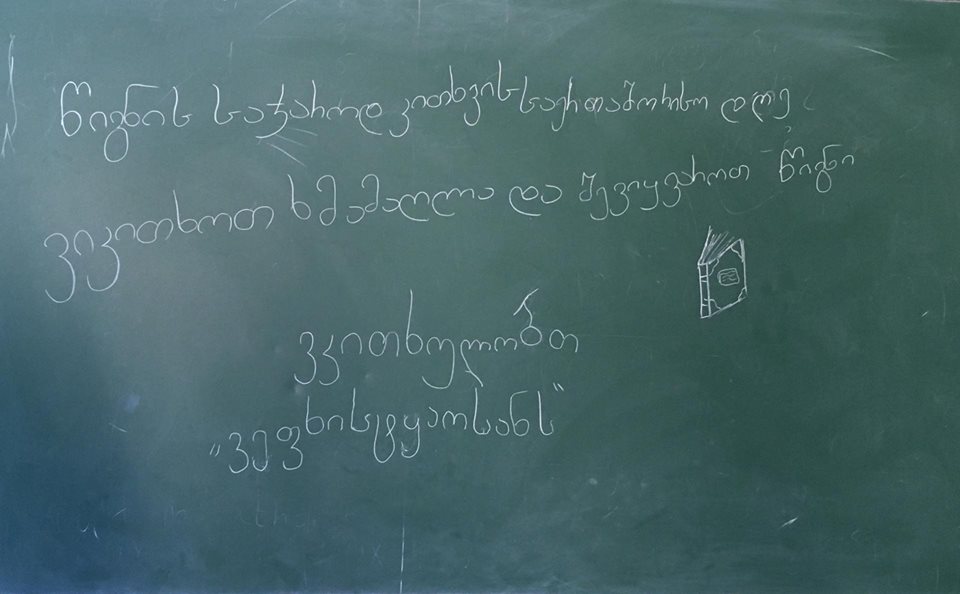 წიგნის საჯაროდ კითხვის საერთაშორისო დღე
ვიკითხოთ ხმამაღლა და შევიყვაროთ წიგნი
ვკითხულობთ
"ვეფხისტყაოსანს"